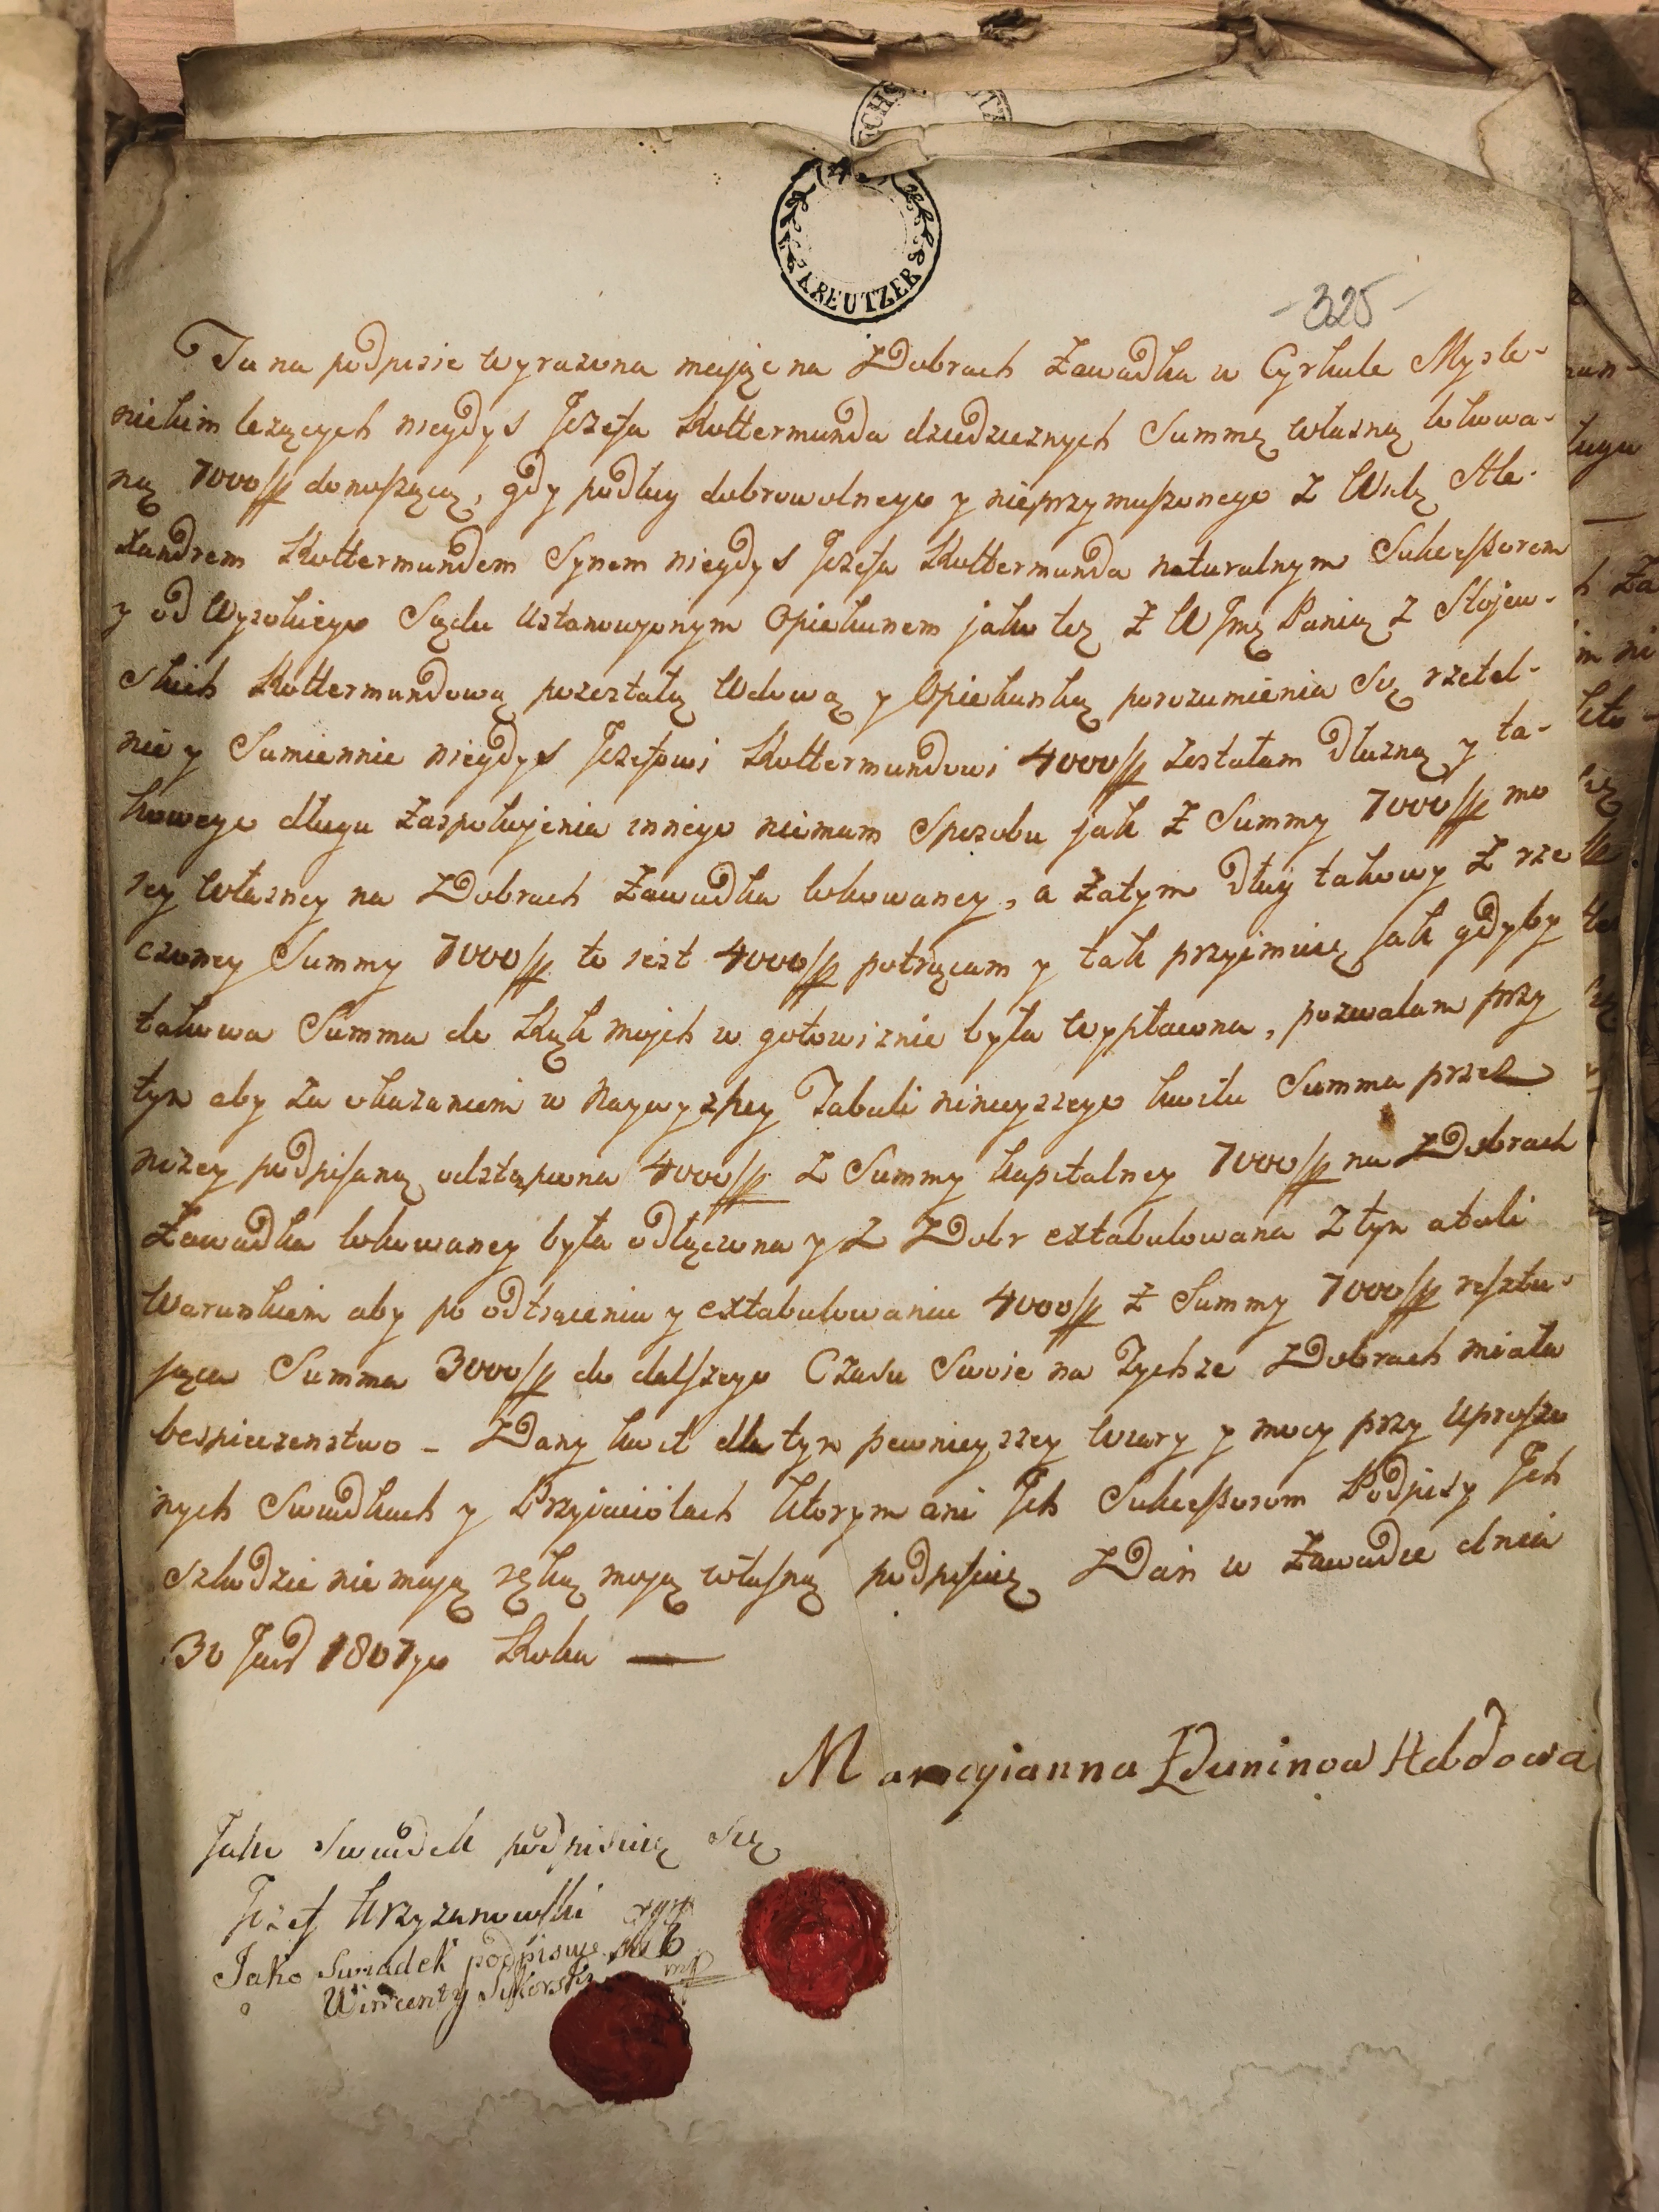 4
KREUTZER
- 325 -
Ja na podpisie wyrazona mając na Dobrach Zawadka w Cyrkule Myśle-
nickim leżących niegdys Jozefa Kottermunda dziedzicznych Summę własną lokowa-
ną 7000 donoszącą, gdy podług dobrowolnego y nieprzymuszonego z Ale-
xandrem Kottermundem Synem niegdys Jozefa Kottermunda naturalnym Sukcessorem
y od Wysokiego Sądu Ustanowionym Opiekunem jako tez z W Jmć Panią z Stojew-
skich Kottermundową pozostałą Wdową y Opiekunką porozumienia Się rzetel-
nie y Sumiennie niegdys Jozefowi Kottermundowi 4000 zostałam Dłuzną y ta-
kowego długu zaspokojenia innego niemam Sposobu jak z Summy 7000 mo
iey własney na Dobrach Zawadka lokowaney, a zatym Dług takowy z rze
czoney Summy 7000 to iest 4000 potrącam y tak przyimuię jak gdyby
takowa Summa do Rąk moich w gotowiznie była wypłacona, pozwalam przy
tym aby za okazaniem w Naywyzszey Tabuli ninieyszego kwitu Summa przez
nizey podpisaną odstąpiona 4000 z Summy kapitalney 7000 na Dobrach
Zawadka lokowaney była odłączona y z Dobr extabulowana z tym atoli
Warunkiem aby po odtrąceniu y extabulowaniu 4000 z Summy 7000 resztu-
jąca Summa 3000 do dalszego Czasu Swoie na Tychze Dobrach miała
bespieczenstwo - Dany kwit dla tym pewnieyszey wiary y mocy przy Uproszo
nych Swiadkach y Przyiaciołach ktorym ani Jch Sukcessorom Podpisy Jch
szkodzic nie mają ręką moją własną podpisuię Dan w Zawadce dnia
30 1807go Roku —
Maryianna Duninowa
Jako Swiadek podpisuię się
Jozef Krzyzanowski mp
Jako Swiadek podpisuie się
Wincenty Sikorski mp